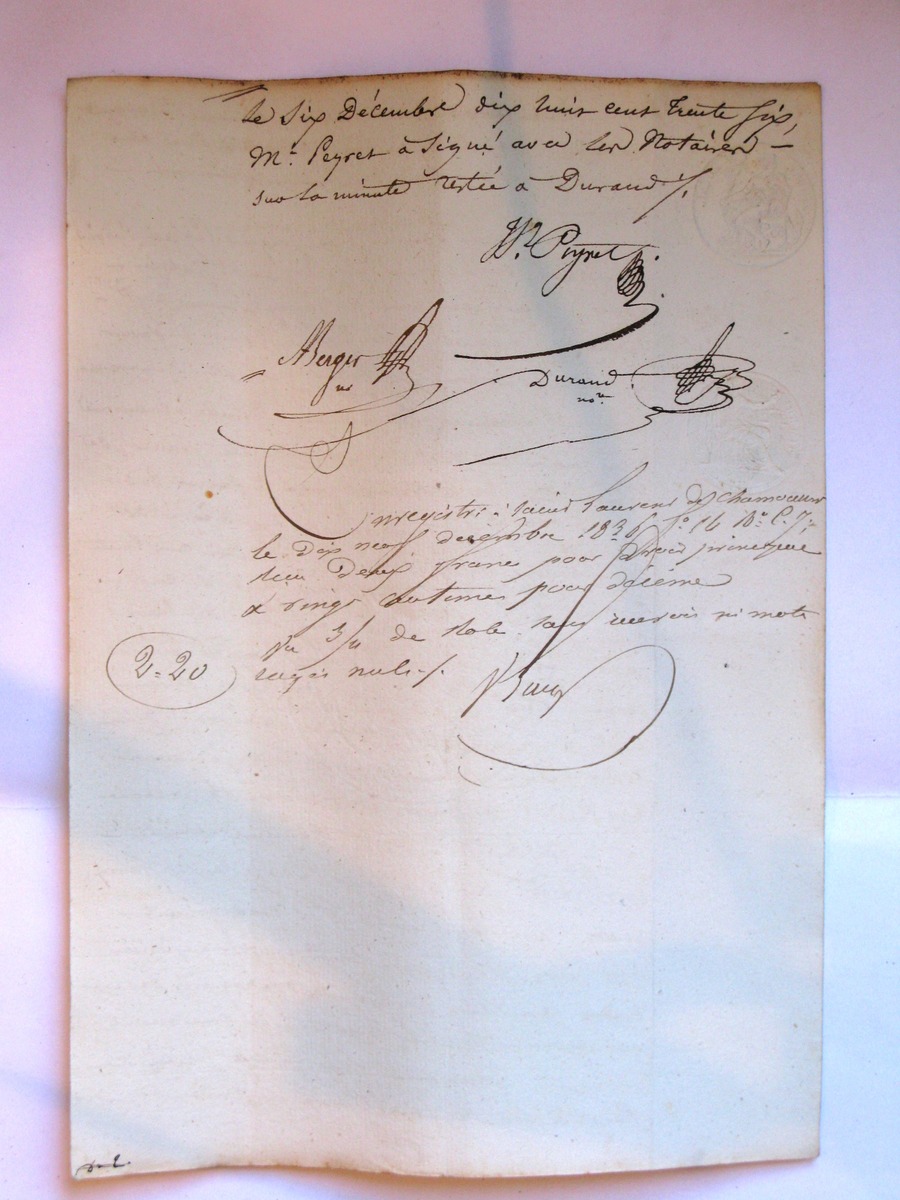 le Six Décembre dix huit cent trente six,
Mr. Peyret a Signé avec les Notaires —
sur la minute restée à Durand /.
Peyret
Berger
nre
Durand
nore
Enregistré à Saint Laurent de Chamousset
le dix neuf décembre 1836 fo. 16 Ro. C. 7.
Reçu deux francs pour Droit principal
& vingt centimes pour décime
3/4 de Role sans renvois ni mots
2=20
rayés nuls /.